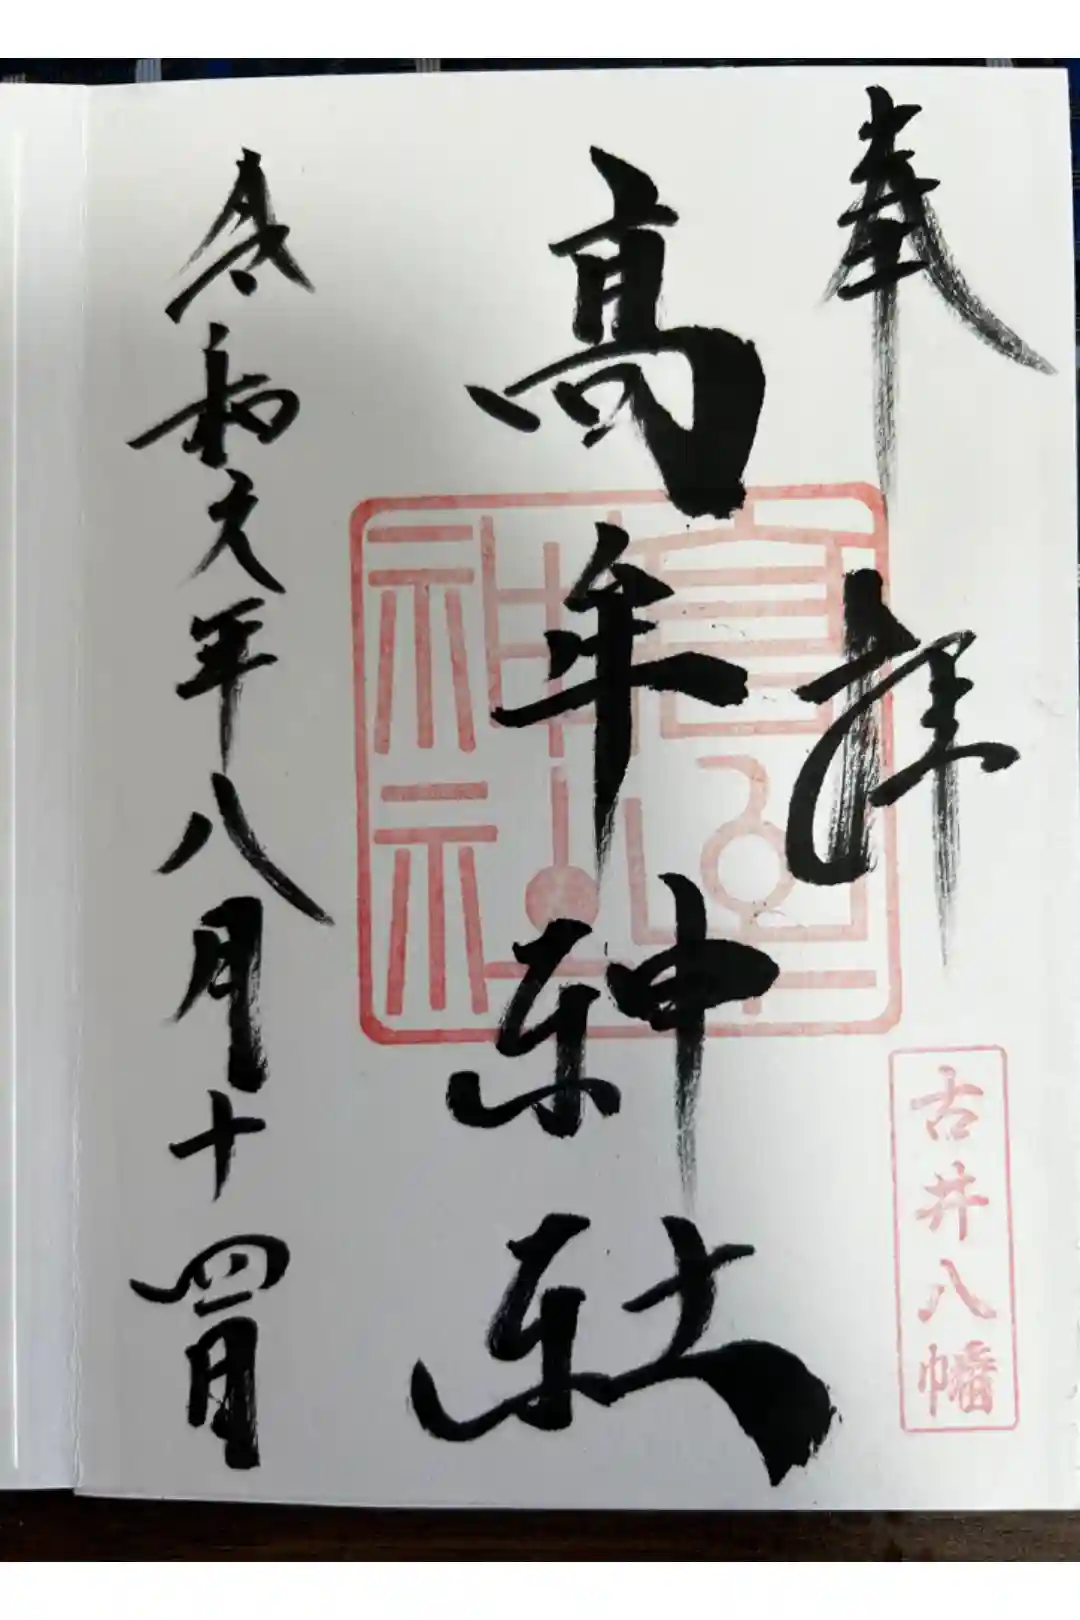 奉拝
古井八幡
高牟神社
高牟神社
令和元年八月十四日